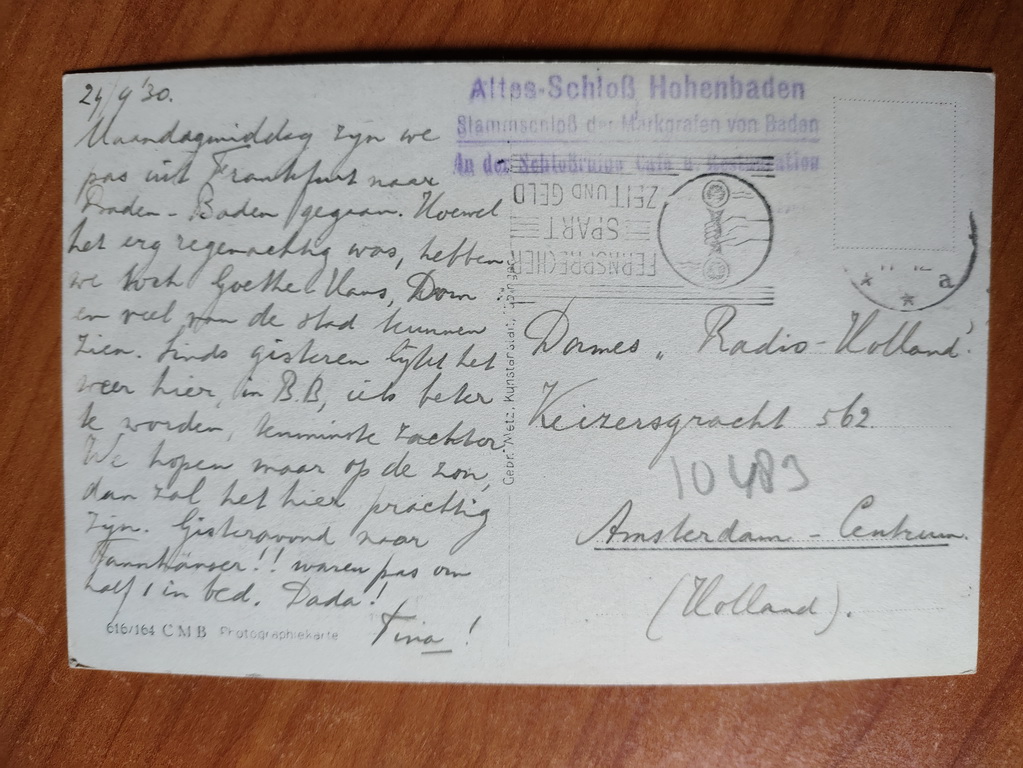 24/9 '30.
Maandagmiddag zijn we
pas uit Frankfurt naar
Baden-Baden gegaan. Hoewel
het erg regenachtig was, hebben
we toch Goethe Haus, Dom
en veel van de stad kunnen
zien. Sinds gisteren lijkt het
weer hier, in B.B, iets beter
te worden, tenminste zachter.
We hopen maar op de zon,
dan zal het hier prachtig
zijn. Gisteravond naar
Tannhäuser!! waren pas om
half 1 in bed. Dada!
Tina!
616/164 CMB Photographiekarte
Gebr. Metz, Kunstanstalt, Tübingen
Altes-Schloß Hohenbaden
Stammschloß der Markgrafen von Baden
An der Schloßruine Café u. Restauration
FERNSPRECHEN
SPART
ZEIT UND GELD
a
Dames „Radio-Holland"
Keizersgracht 562.
10483
Amsterdam-Centrum.
(Holland).